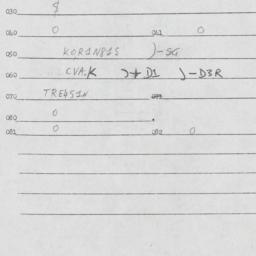 030
040 0 041 0
050 KOR1N81S )-SG
060 CVA.K )+D1 )-D3R
070 TRE4S1N
080 0
081 0 082 0